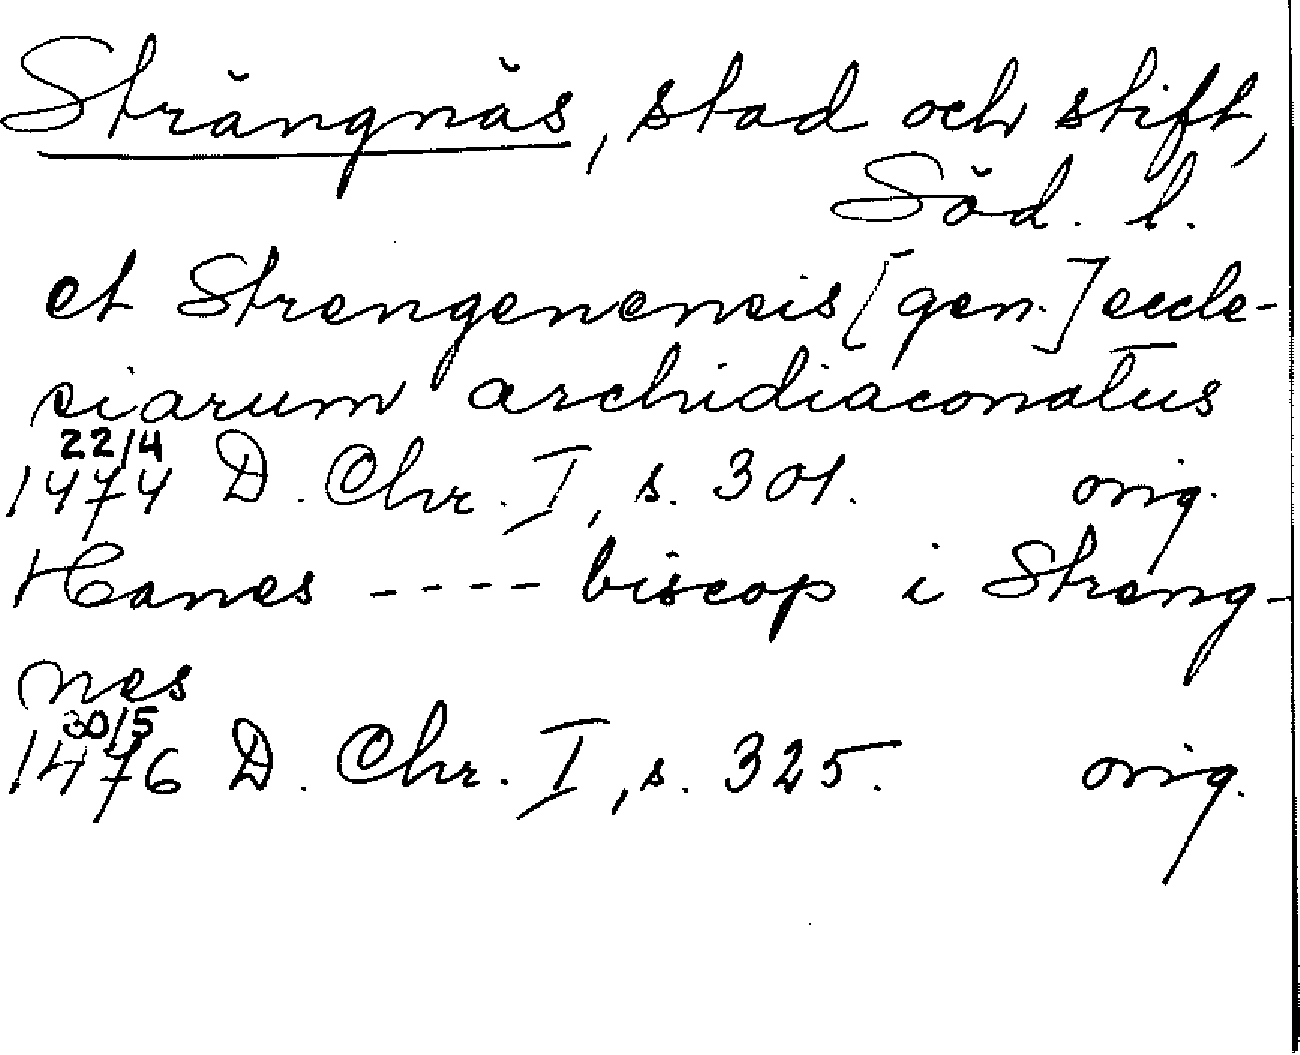 Strängnäs, stad och stift,
Söd. l.
et Strengenensis [gen.] eccle-
siarum archidiaconatus
22/4
1474 D. Chr. I, s. 301. orig.
Hanes ---- biscop i Streng-
nes
30/5
1476 D. Chr. I, s. 325. orig.